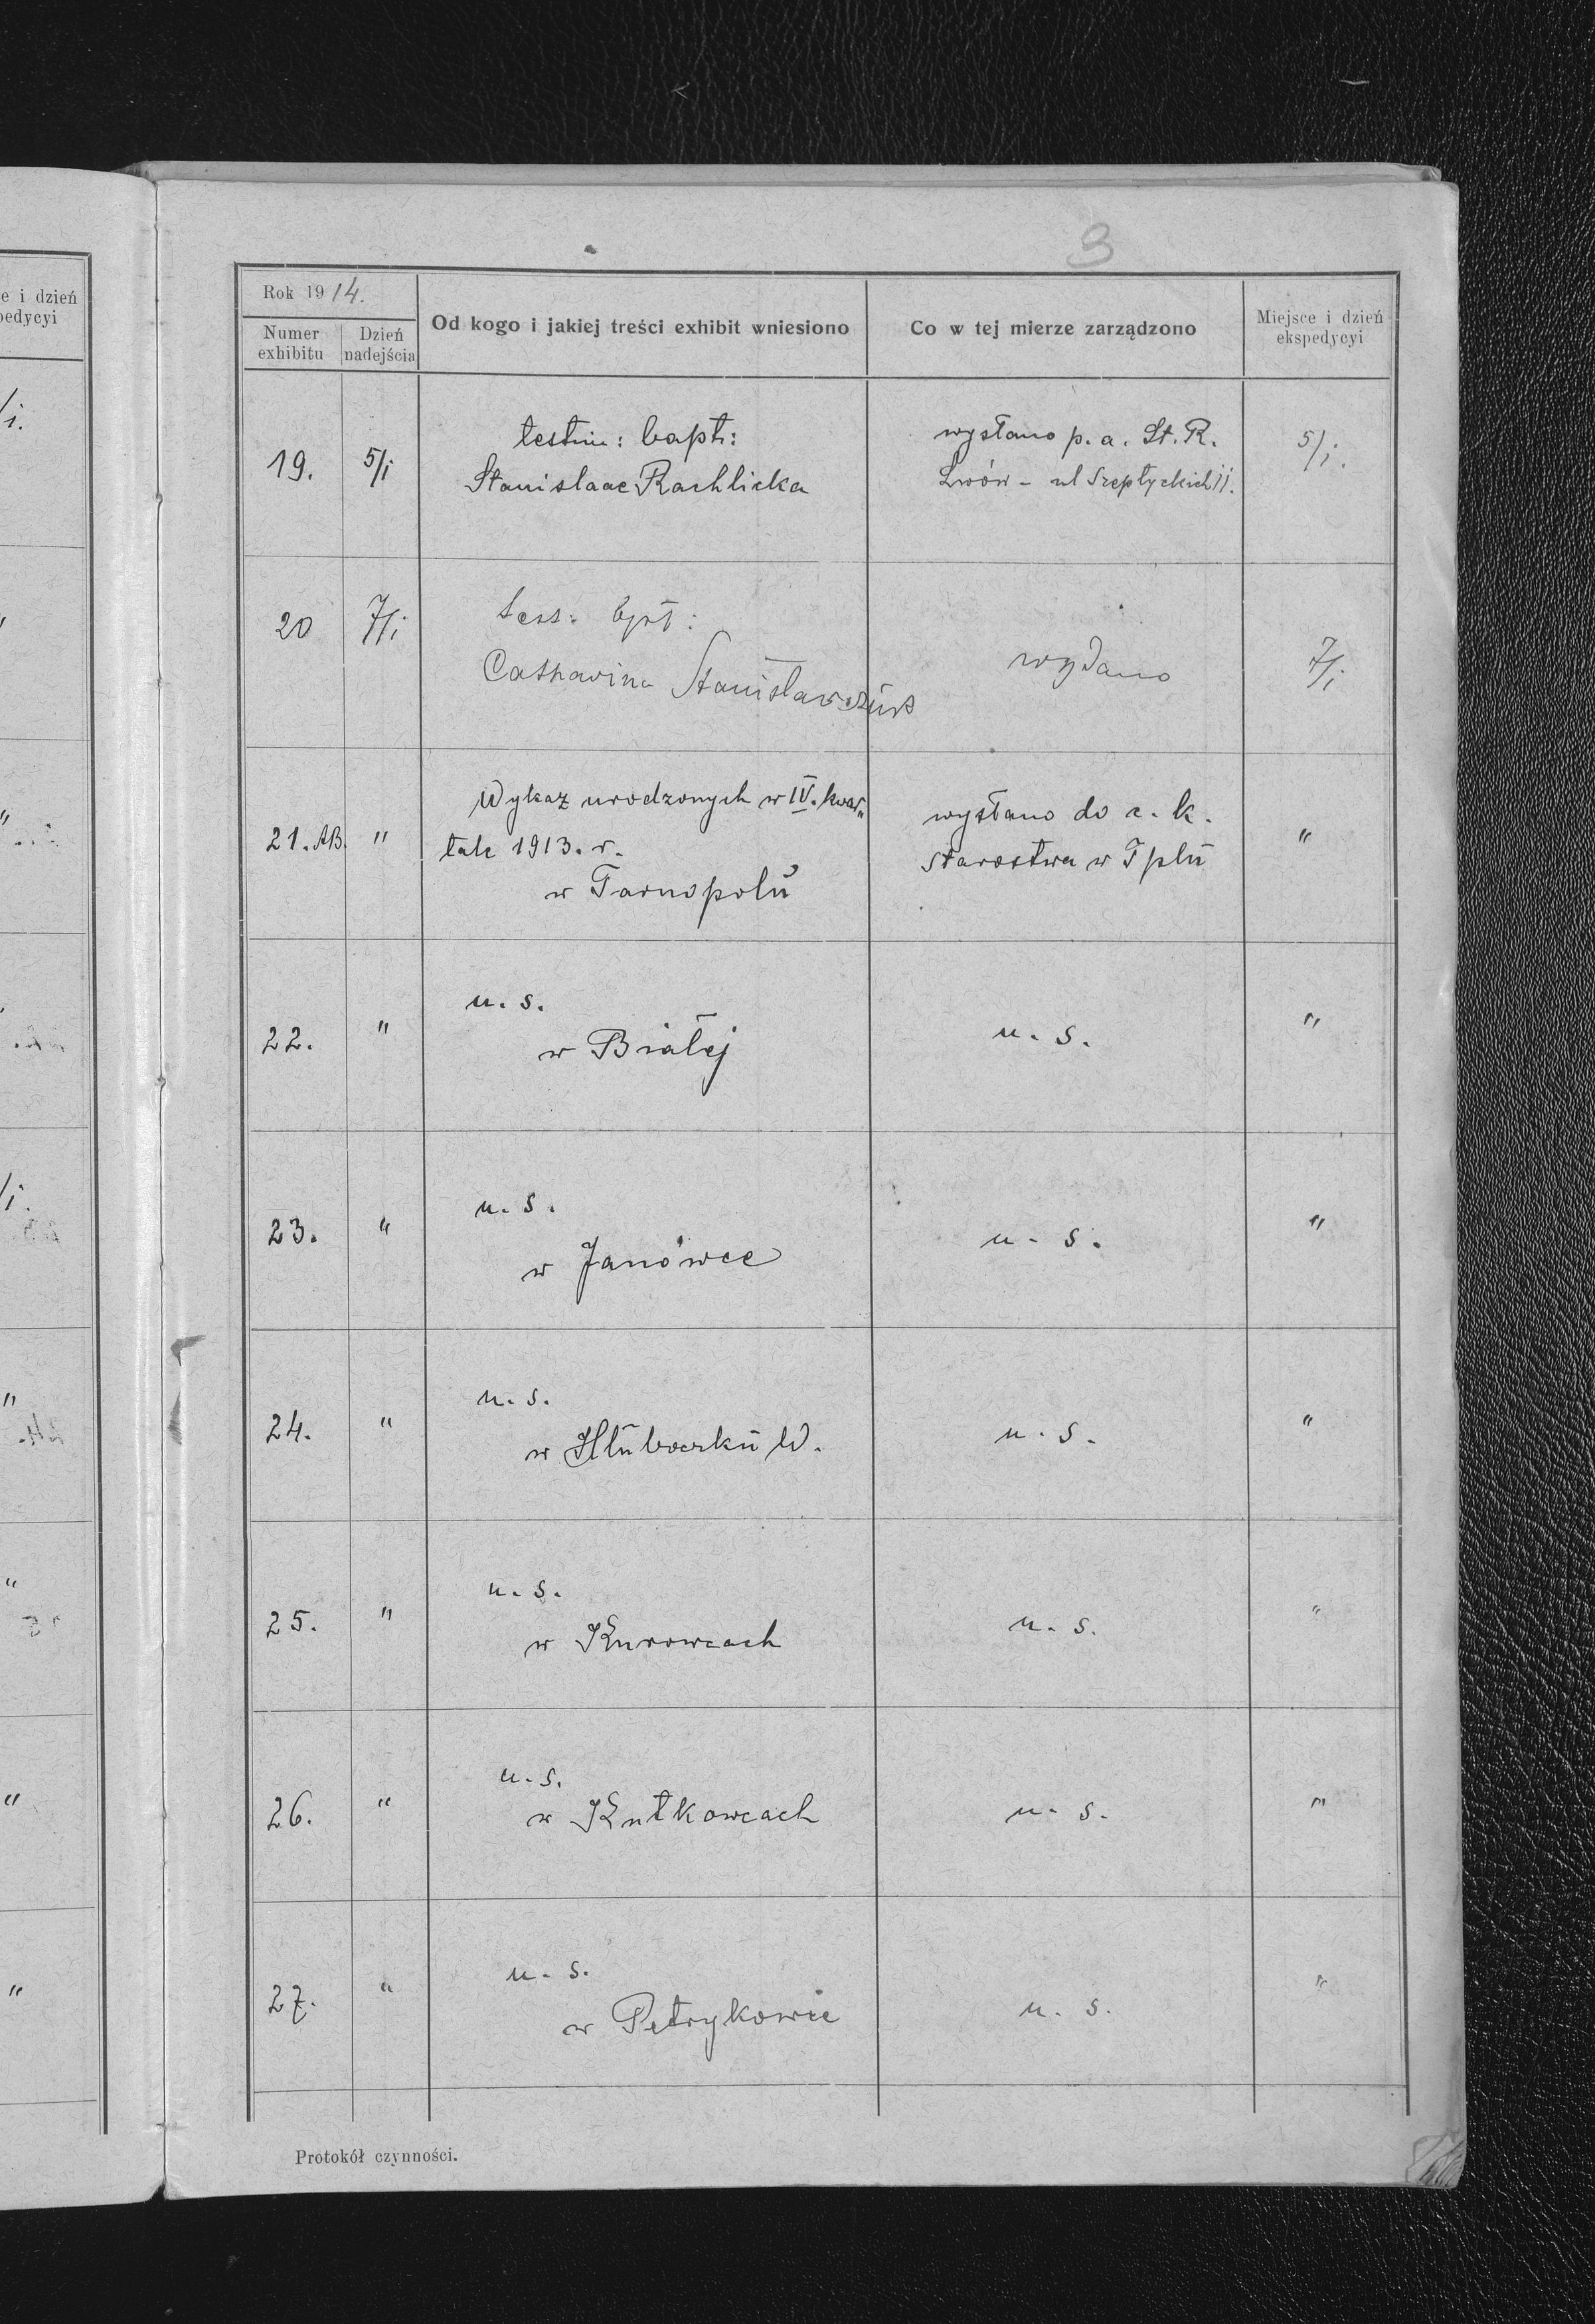 3
e i dzień
pedycyi
Rok 1914.
Numer exhibitu
Dzień nadejścia
Od kogo i jakiej treści exhibit wniesiono
Co w tej mierze zarządzono
Miejsce i dzień ekspedycyi
19. 5/i testim: bapt: wysłano p. a. St. R. 5/i.
Stanislaae Rachlicka Lwów - ul Szeptyckich
20 7/i test: bpt: wydano 7/i
Catharina Stanisławczuk
21. AB. " Wykaz urodzonych w IV. kwar„ wysłano do c. k. "
tale 1913. r. starostwa w Tplu
w Tarnopolu
22. " u. s. u. s. "
w Białej
23. " u. s. u. s. "
w Janówce
24. " u. s. u. s. "
w Hłuboczku W.
25. " u. s. u. s. "
w Kurowcach
26. " u. s. u. s. "
w Kutkowcach
27. " u. s. u. s. "
w Petrykowie
Protokół czynności.